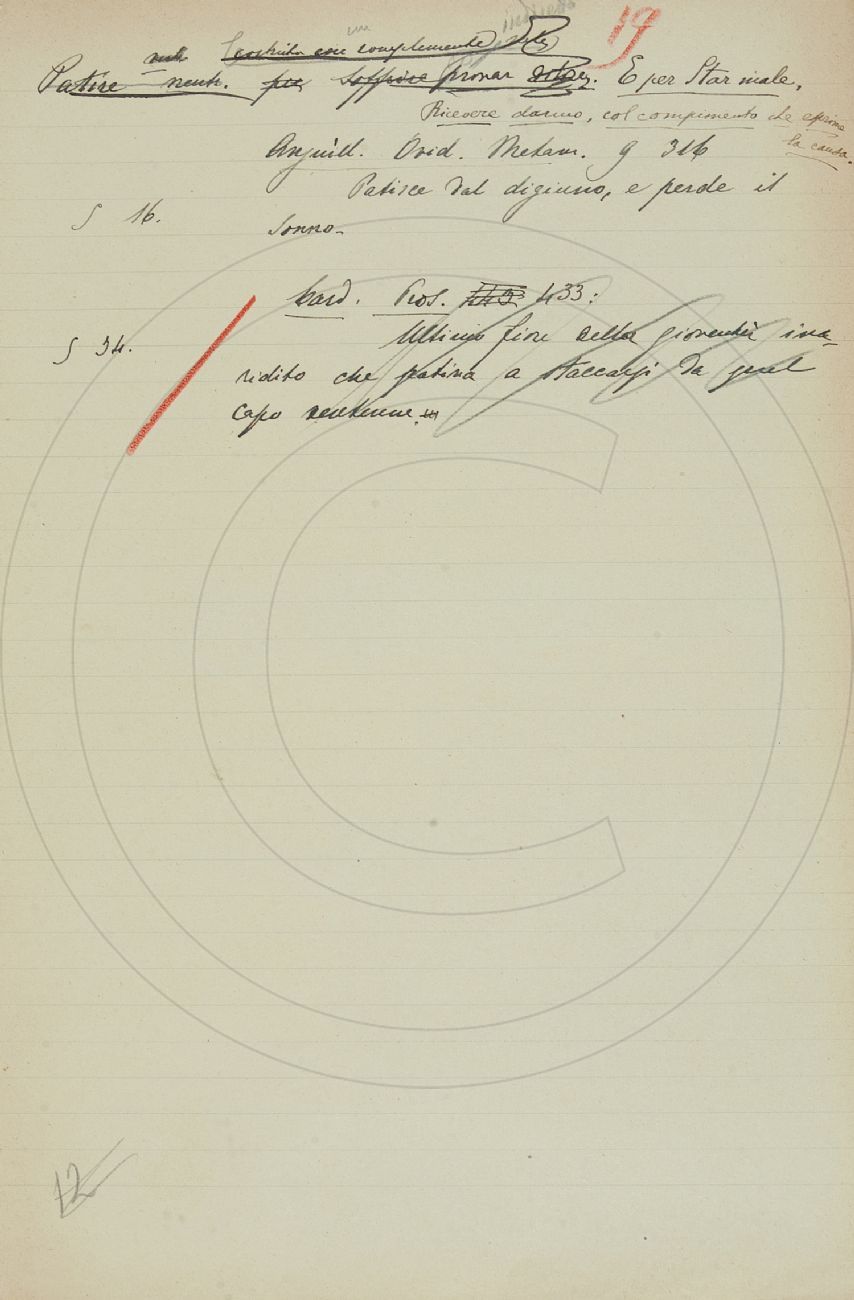 19
costruito con complemento
Patire neutr. per Soffrire Provar dolore. E per Star male,
Ricevere danno, col compimento che esprime
la causa.
Anguill. Ovid. Metam. 9 316
Patisce dal digiuno, e perde il
§ 16.
sonno.
Card. Pros. 433:
Ultimo fiore della gioventù ina-
§ 34.
ridito che pativa a staccarsi da quel
capo ventenne.
12